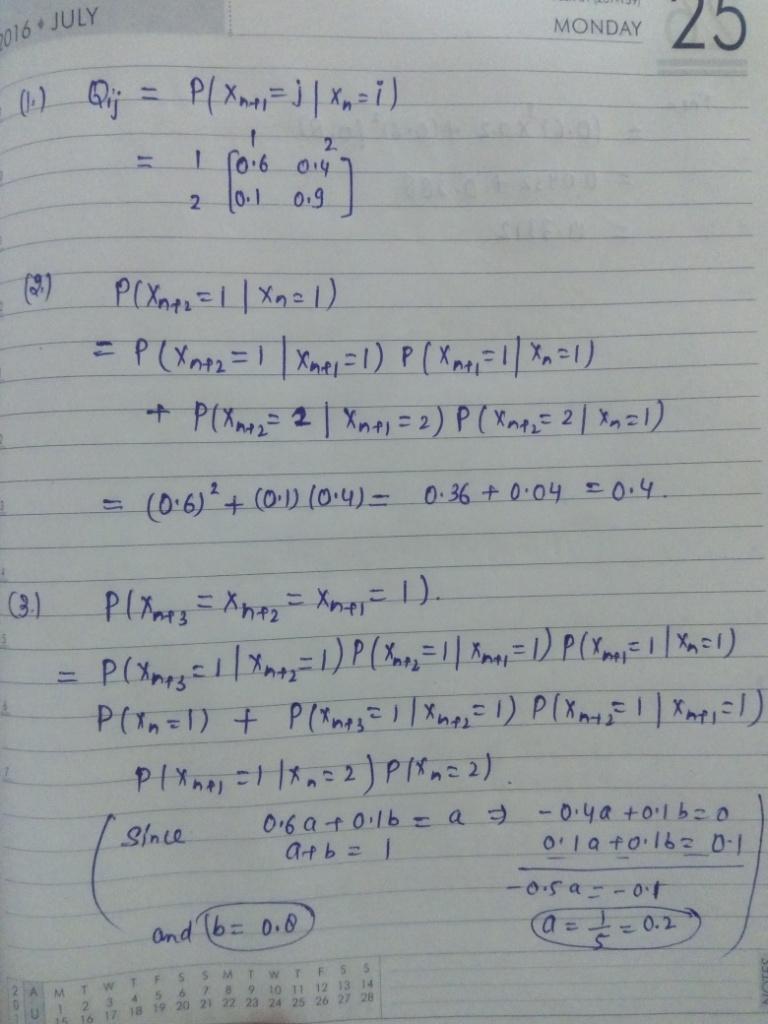 2016 • JULY
MONDAY 25
(1.) Qij = P(Xn+1 = j | Xn = i)
1 2
= 1 [0.6 0.4]
2 [0.1 0.9]
(2.) P(Xn+2 = 1 | Xn = 1)
= P(Xn+2 = 1 | Xn+1 = 1) P(Xn+1 = 1 | Xn = 1)
+ P(Xn+2 = 2 | Xn+1 = 2) P(Xn+2 = 2 | Xn = 1)
= (0.6)² + (0.1)(0.4) = 0.36 + 0.04 = 0.4.
(3.) P(Xn+3 = Xn+2 = Xn+1 = 1).
= P(Xn+3 = 1 | Xn+2 = 1) P(Xn+2 = 1 | Xn+1 = 1) P(Xn+1 = 1 | Xn = 1)
P(Xn = 1) + P(Xn+3 = 1 | Xn+2 = 1) P(Xn+2 = 1 | Xn+1 = 1)
P(Xn+1 = 1 | Xn = 2) P(Xn = 2).
Since 0.6a + 0.1b = a ⇒ -0.4a + 0.1b = 0
a + b = 1 0.1a + 0.1b = 0.1
-0.5a = -0.1
and b = 0.8 a = 1/5 = 0.2
M T W T F S S M T W T F S S
1 2 3 4 5 6 7 8 9 10 11 12 13 14
15 16 17 18 19 20 21 22 23 24 25 26 27 28
NOTES